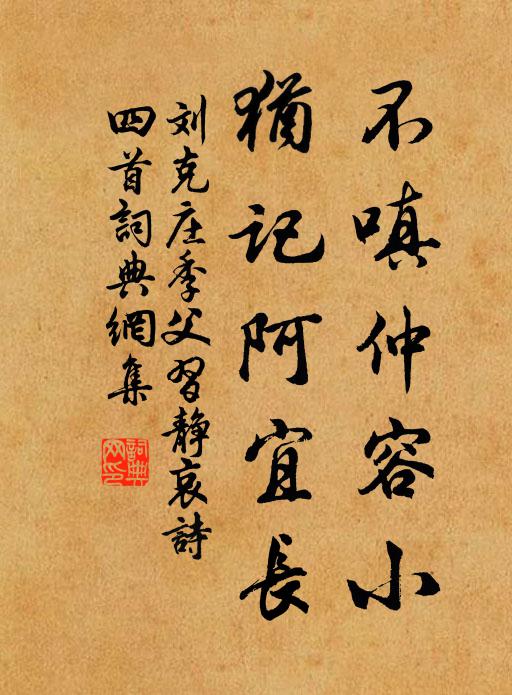 不嗔仲容小
猶记阿宜長
刘克庄季父習静哀詩
四首詞典網集
詞典网印